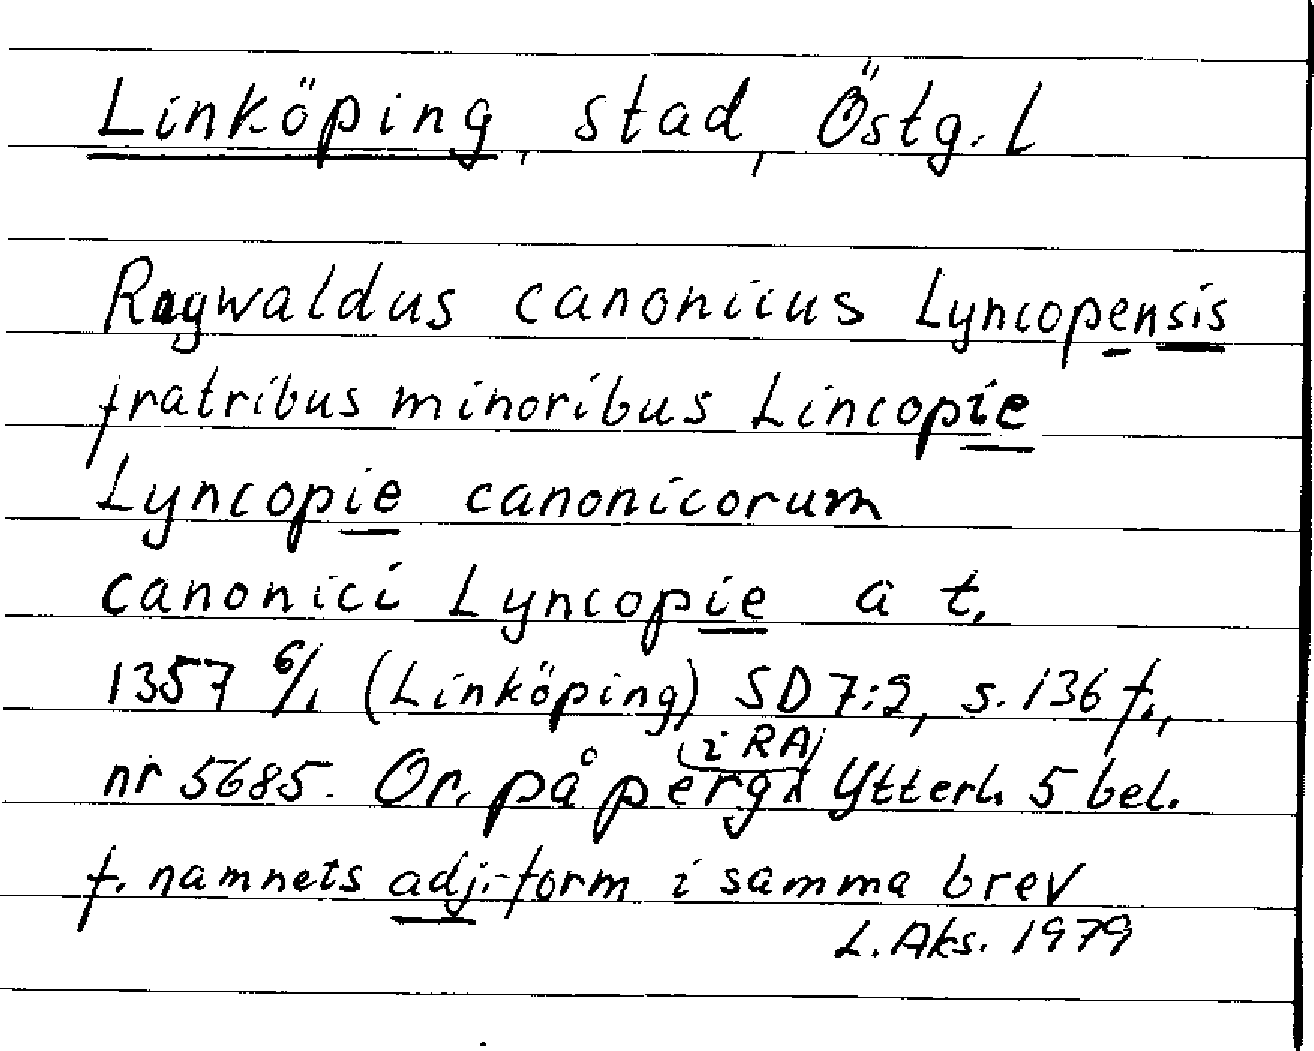 Linköping, stad, Östg. l
Ragwaldus canonicus Lyncopensis
fratribus minoribus Lincopie
Lyncopie canonicorum
canonici Lyncopie a t.
1357 6/1 (Linköping) SD 7:2, s. 136 f.,
nr 5685. Or. på perg (i RA) Ytterl. 5 bel.
f. namnets adj.-form i samma brev
L. Aks. 1979